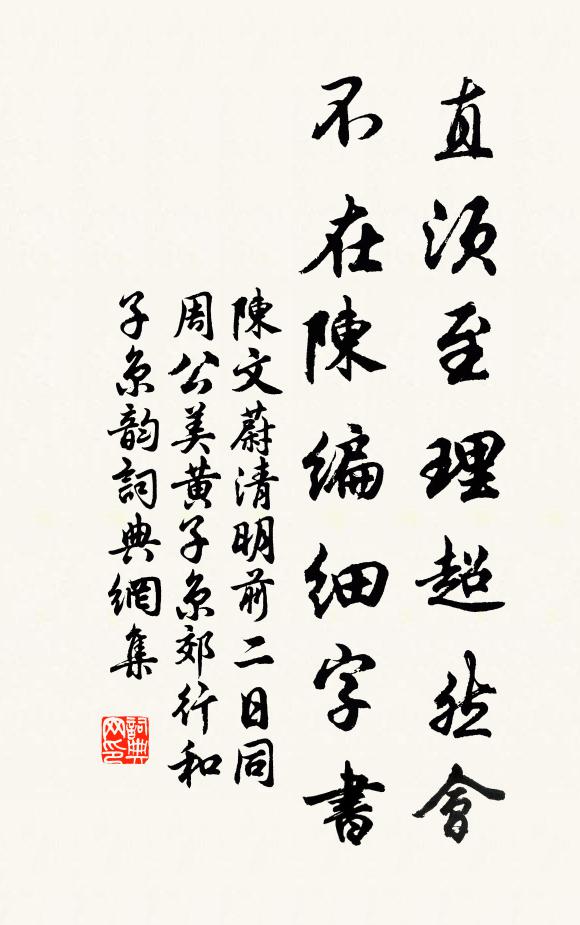 直須至理超然會
不在陳編細字書
陳文蔚清明前二日同
周公美黄子京郊行和
子京韵詞典網集
詞典网印